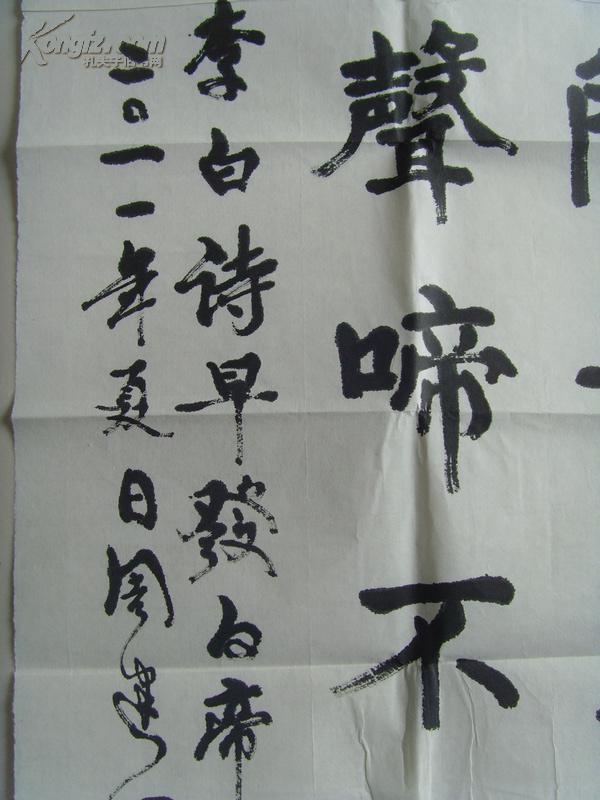 聲啼不
李白诗早發白帝
二〇一一年夏日周建
Kongfz.com
孔夫子旧书网